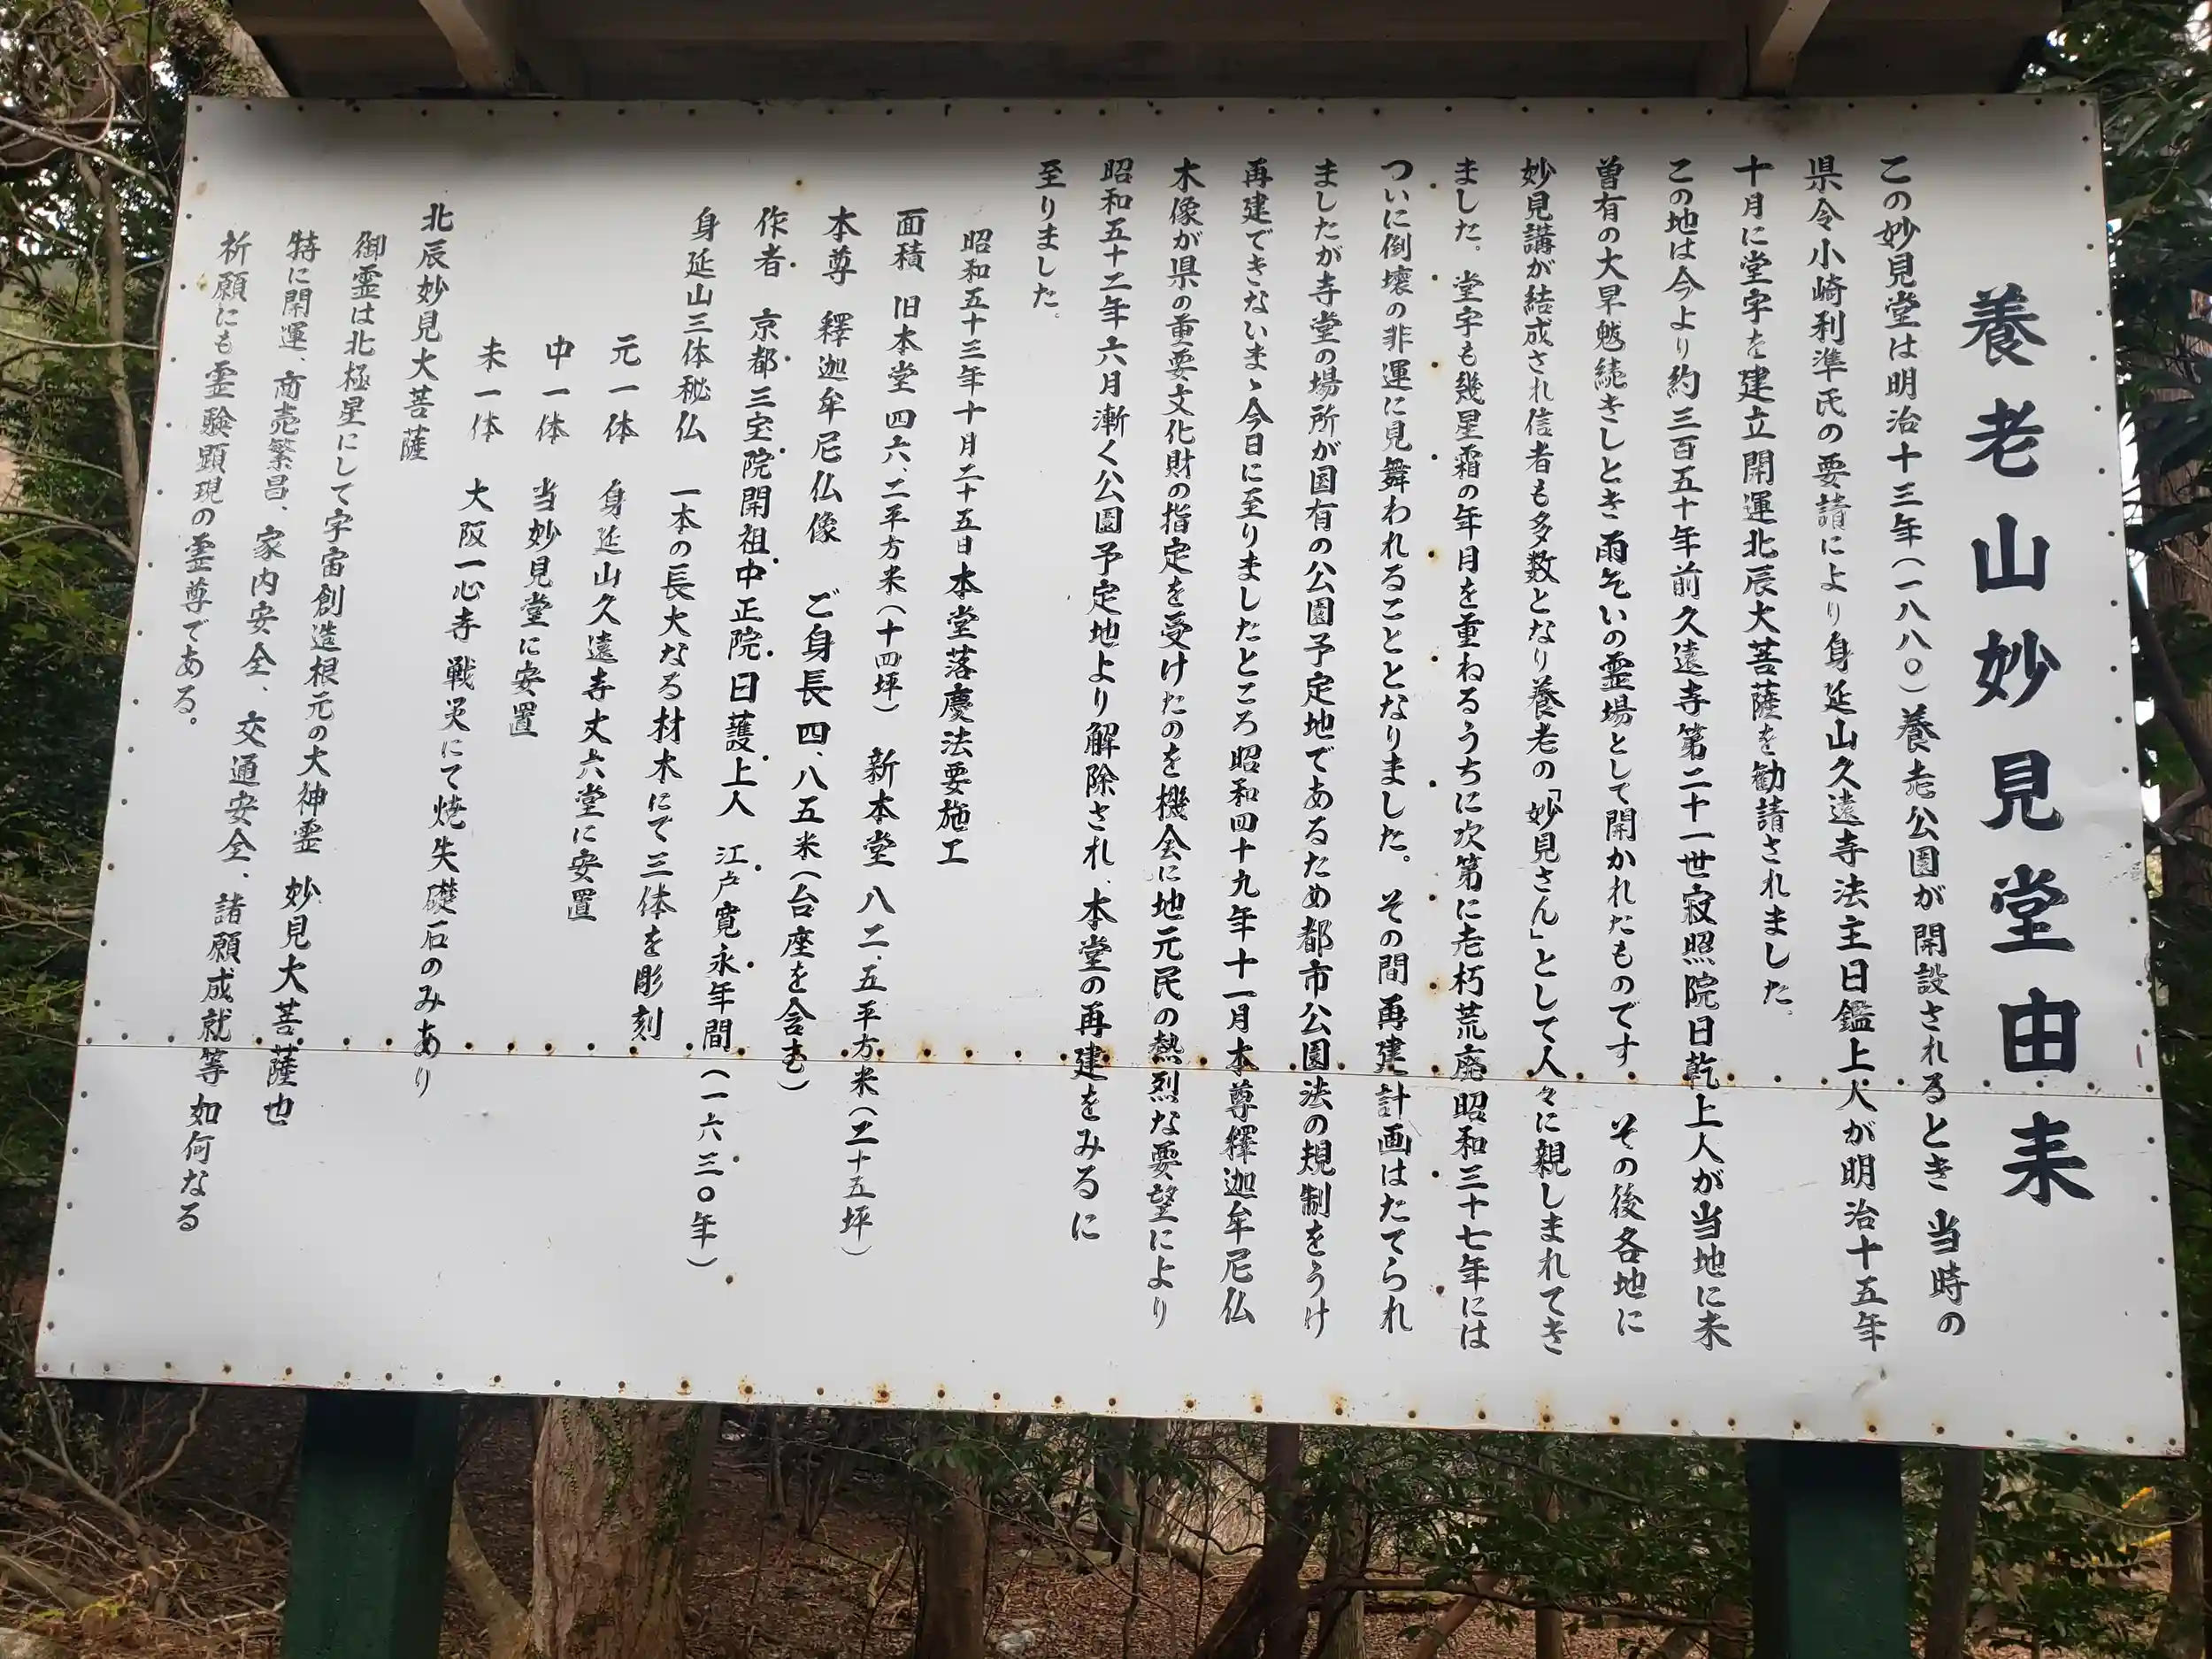 養老山妙見堂由来
この妙見堂は明治十三年(一八八〇)養老公園が開設されるとき当時の
県令小崎利準氏の要請により身延山久遠寺法主日鑑上人が明治十五年
十月に堂宇を建立開運北辰大菩薩を勧請されました。
この地は今より約三百五十年前久遠寺第二十一世寂照院日乾上人が当地に来
曽有の大旱魃続きしとき雨乞いの霊場として開かれたものです その後各地に
妙見講が結成され信者も多数となり養老の「妙見さん」として人々に親しまれてき
ました。堂宇も幾星霜の年月を重ねるうちに次第に老朽荒廃昭和三十七年には
ついに倒壊の非運に見舞われることとなりました。その間再建計画はたてられ
ましたが寺堂の場所が国有の公園予定地であるため都市公園法の規制をうけ
再建できないまゝ今日に至りましたところ昭和四十九年十一月本尊釋迦牟尼仏
木像が県の重要文化財の指定を受けたのを機会に地元民の熱烈な要望により
昭和五十二年六月漸く公園予定地より解除され、本堂の再建をみるに
至りました。
昭和五十三年十月二十五日本堂落慶法要施工
面積 旧本堂四六、二平方米(十四坪) 新本堂 八二、五平方米(二十五坪)
本尊 釋迦牟尼仏像 ご身長四、八五米(台座を含む)
作者 京都三宝院開祖中正院日護上人 江戸寛永年間(一六三〇年)
身延山三体秘仏 一本の長大なる材木にて三体を彫刻
元一体 身延山久遠寺丈六堂に安置
中一体 当妙見堂に安置
末一体 大阪一心寺 戦災にて焼失礎石のみあり
北辰妙見大菩薩
御霊は北極星にして宇宙創造根元の大神霊 妙見大菩薩也
特に開運、商売繁昌、家内安全、交通安全、諸願成就等如何なる
祈願にも霊験顕現の霊尊である。